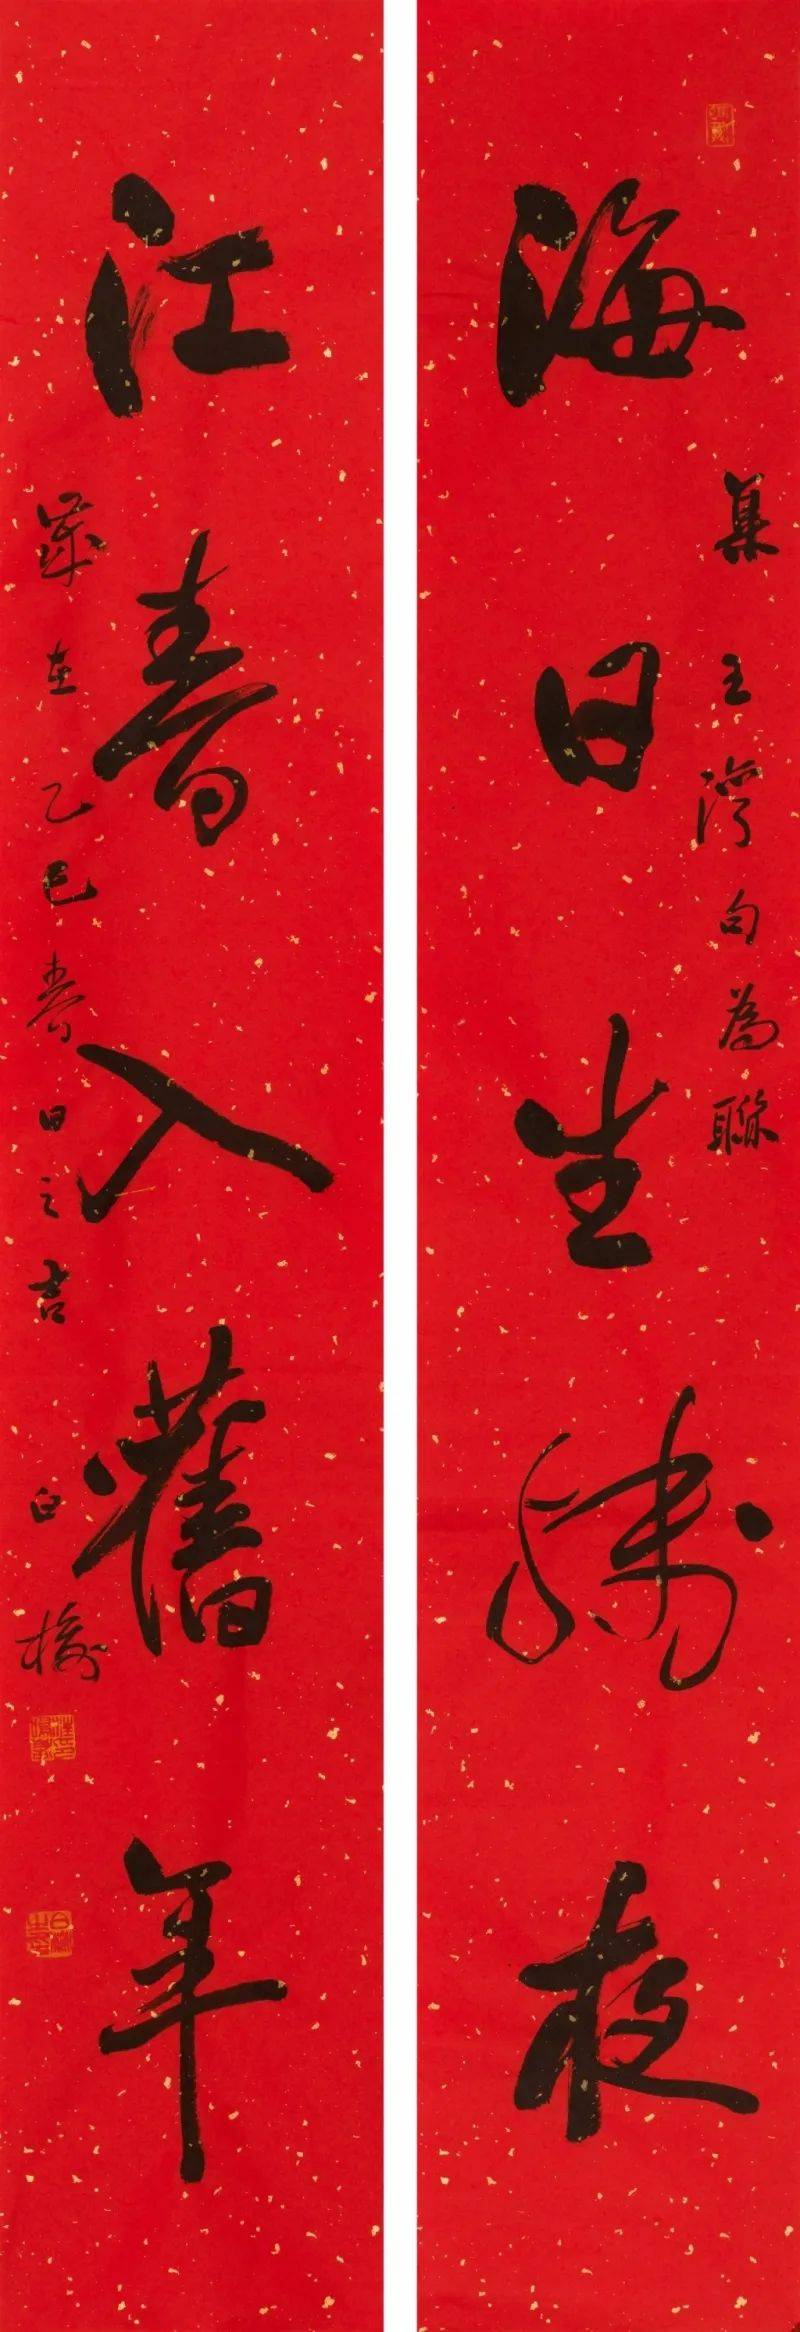 海日生殘夜
集王灣句為聯
江春入舊年
歲在乙巳春日之吉 白